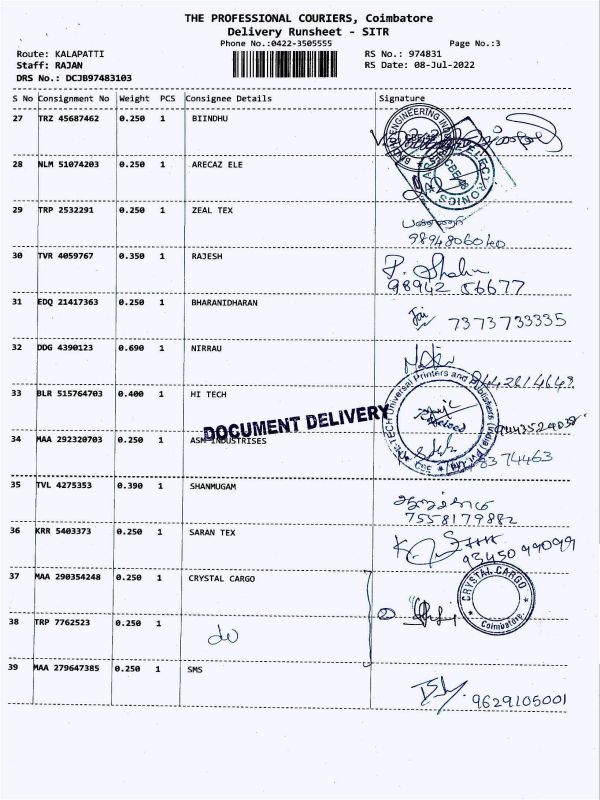 THE PROFESSIONAL COURIERS, Coimbatore
Delivery Runsheet - SITR
Phone No.:0422-3505555 Page No.:3
Route: KALAPATTI RS No.: 974831
Staff: RAJAN RS Date: 08-Jul-2022
DRS No.: DCJB97483103
S No Consignment No Weight PCS Consignee Details Signature
27 TRZ 45687462 0.250 1 BIINDHU
28 NLM 51074203 0.250 1 ARECAZ ELE
29 TRP 2532291 0.250 1 ZEAL TEX
9894806040
30 TVR 4059767 0.350 1 RAJESH
98942 56677
31 EDQ 21417363 0.250 1 BHARANIDHARAN
Jai 7373733335
32 DDG 4390123 0.690 1 NIRRAU
33 BLR 515764703 0.400 1 HI TECH
HI-TECH Universal Printers and Publishers (India) Pvt Ltd
DOCUMENT DELIVERY
34 MAA 292320703 0.250 1 ASM INDUSTRISES
35 TVL 4275353 0.390 1 SHANMUGAM
7558179882
36 KRR 5403373 0.250 1 SARAN TEX
9345099099
37 MAA 290354248 0.250 1 CRYSTAL CARGO
CRYSTAL CARGO
Coimbatore
38 TRP 7762523 0.250 1
do
39 MAA 279647385 0.250 1 SMS
9629105001